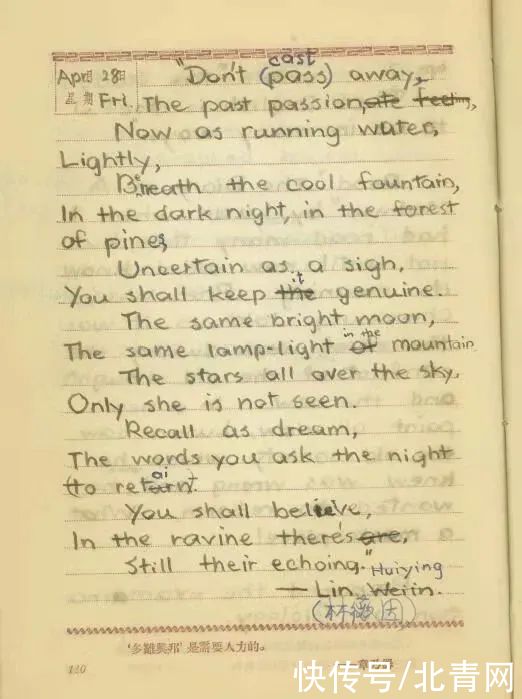 cast
"Don't (pass) away,
April 28日
星期 Fri.
The past passion,ate feeling,
Now as running water,
Lightly,
Beneath the cool fountain,
In the dark night, in the forest
of pines,
Uncertain as a sigh,
it
You shall keep the genuine.
The same bright moon,
in the
The same lamp-light of mountain
The stars all over the sky,
Only she is not seen.
Recall as dream,
The words you ask the night
ai
(to return.
You shall believe,
In the ravine there's are,
Still their echoing."
Huiying
— Lin Weiin.
(林徽因)
'多難興邦'是需要人力的。
120
章乃器
快传号/北青网